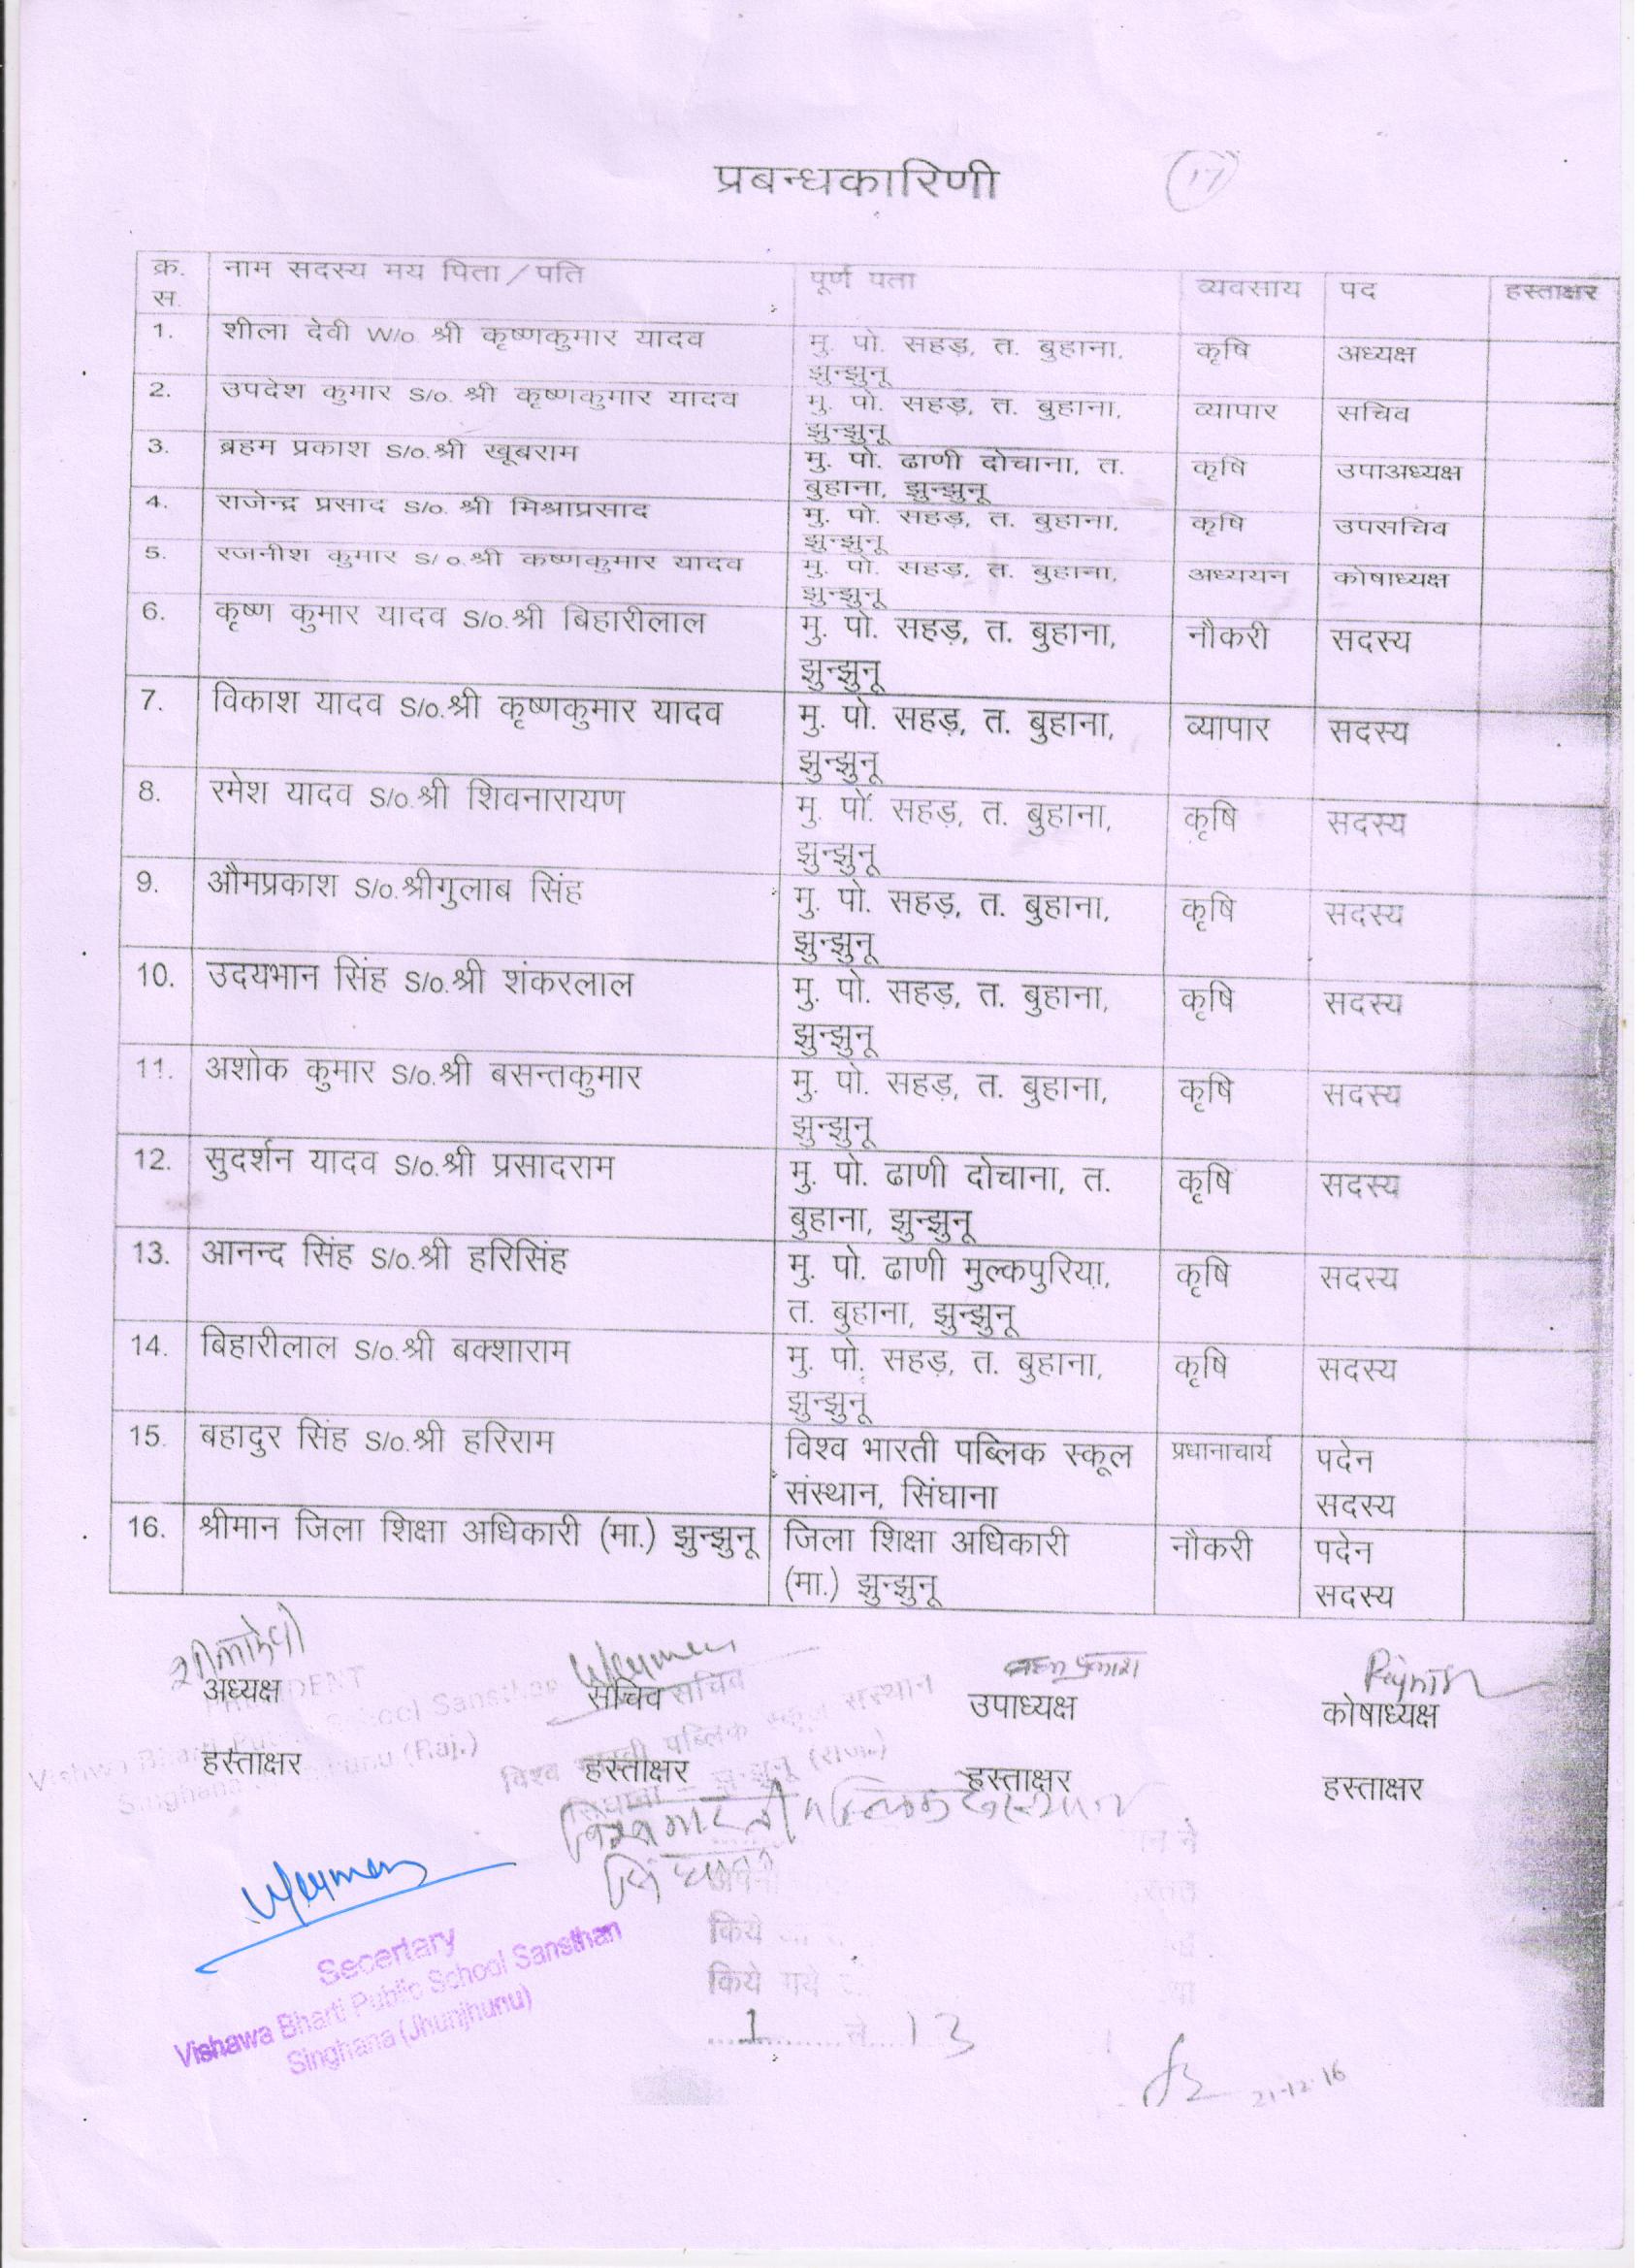 प्रबन्धकारिणी
17
क्र. स. नाम सदस्य मय पिता/पति पूर्ण पता व्यवसाय पद हस्ताक्षर
1. शीला देवी W/o. श्री कृष्णकुमार यादव मु. पो. सहड़, त. बुहाना, कृषि अध्यक्ष
झुन्झुनू
2. उपदेश कुमार S/o. श्री कृष्णकुमार यादव मु. पो. सहड़, त. बुहाना, व्यापार सचिव
झुन्झुनू
3. ब्रहम प्रकाश S/o.श्री खूबराम मु. पो. ढाणी दोचाना, त. कृषि उपाअध्यक्ष
बुहाना, झुन्झुनू
4. राजेन्द्र प्रसाद S/o. श्री मिश्राप्रसाद मु. पो. सहड़, त. बुहाना, कृषि उपसचिव
झुन्झुनू
5. रजनीश कुमार S/o.श्री कष्णकुमार यादव मु. पो. सहड़, त. बुहाना, अध्ययन कोषाध्यक्ष
झुन्झुनू
6. कृष्ण कुमार यादव S/o.श्री बिहारीलाल मु. पो. सहड़, त. बुहाना, नौकरी सदस्य
झुन्झुनू
7. विकाश यादव S/o.श्री कृष्णकुमार यादव मु. पो. सहड़, त. बुहाना, व्यापार सदस्य
झुन्झुनू
8. रमेश यादव S/o.श्री शिवनारायण मु. पो. सहड़, त. बुहाना, कृषि सदस्य
झुन्झुनू
9. औमप्रकाश S/o.श्रीगुलाब सिंह मु. पो. सहड़, त. बुहाना, कृषि सदस्य
झुन्झुनू
10. उदयभान सिंह S/o.श्री शंकरलाल मु. पो. सहड़, त. बुहाना, कृषि सदस्य
झुन्झुनू
11. अशोक कुमार S/o.श्री बसन्तकुमार मु. पो. सहड़, त. बुहाना, कृषि सदस्य
झुन्झुनू
12. सुदर्शन यादव S/o.श्री प्रसादराम मु. पो. ढाणी दोचाना, त. कृषि सदस्य
बुहाना, झुन्झुनू
13. आनन्द सिंह S/o.श्री हरिसिंह मु. पो. ढाणी मुल्कपुरिया, कृषि सदस्य
त. बुहाना, झुन्झुनू
14. बिहारीलाल S/o.श्री बक्शाराम मु. पो. सहड़, त. बुहाना, कृषि सदस्य
झुन्झुनू
15. बहादुर सिंह S/o.श्री हरिराम विश्व भारती पब्लिक स्कूल प्रधानाचार्य पदेन
संस्थान, सिंघाना सदस्य
16. श्रीमान जिला शिक्षा अधिकारी (मा.) झुन्झुनू जिला शिक्षा अधिकारी नौकरी पदेन
(मा.) झुन्झुनू सदस्य
शीलादेवी
अध्यक्ष सचिव उपाध्यक्ष कोषाध्यक्ष
सचिव
School Sansthan
विश्व भारती पब्लिक स्कूल संस्थान
हस्ताक्षर हस्ताक्षर हस्ताक्षर हस्ताक्षर
सिंघाना - झुन्झुनू (राज.)
Singhana (Raj.)
विश्व भारती पब्लिक संस्थान
सिंघाना
किये
किये गये
1 से 13
Secertary
Vishawa Bharti Public School Sansthan
Singhana (Jhunjhunu)
21-12-16